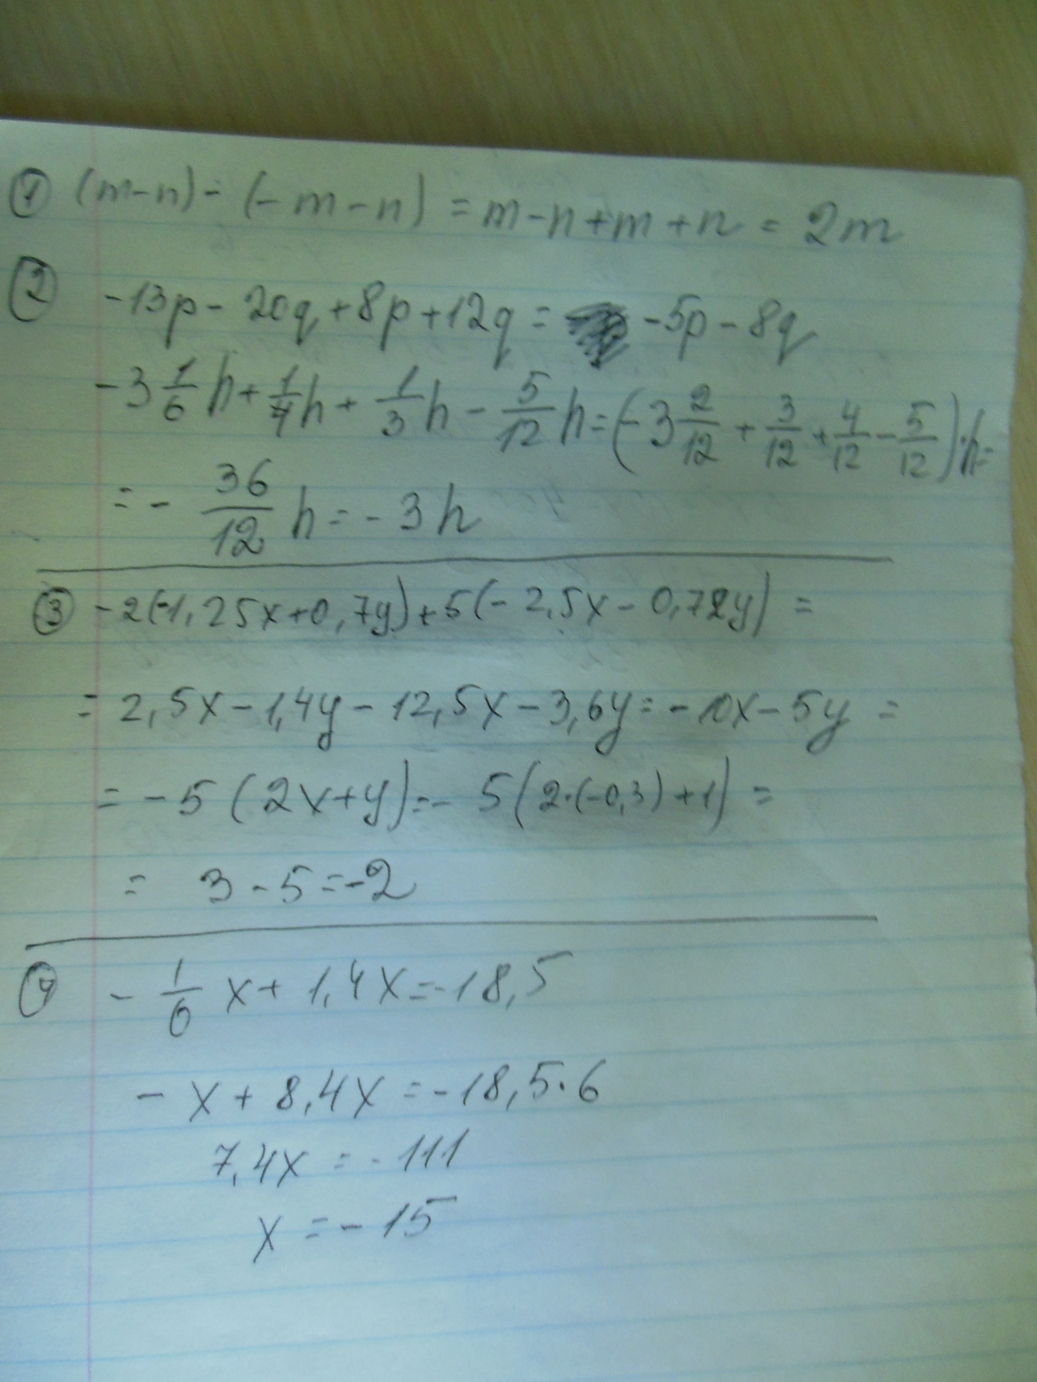 ① (m-n)-(-m-n)=m-n+m+n=2m
② -13p-20q+8p+12q= -5p-8q
-3 1/6 h+1/4 h+1/3 h-5/12 h=(-3 2/12+3/12+4/12-5/12)·h=
=-36/12 h=-3h
③ -2(-1,25x+0,7y)+5(-2,5x-0,72y)=
=2,5x-1,4y-12,5x-3,6y=-10x-5y=
=-5(2x+y)=-5(2·(-0,3)+1)=
= 3-5=-2
④ -1/6 x+1,4x=-18,5
-x+8,4x=-18,5·6
7,4x=-111
x=-15